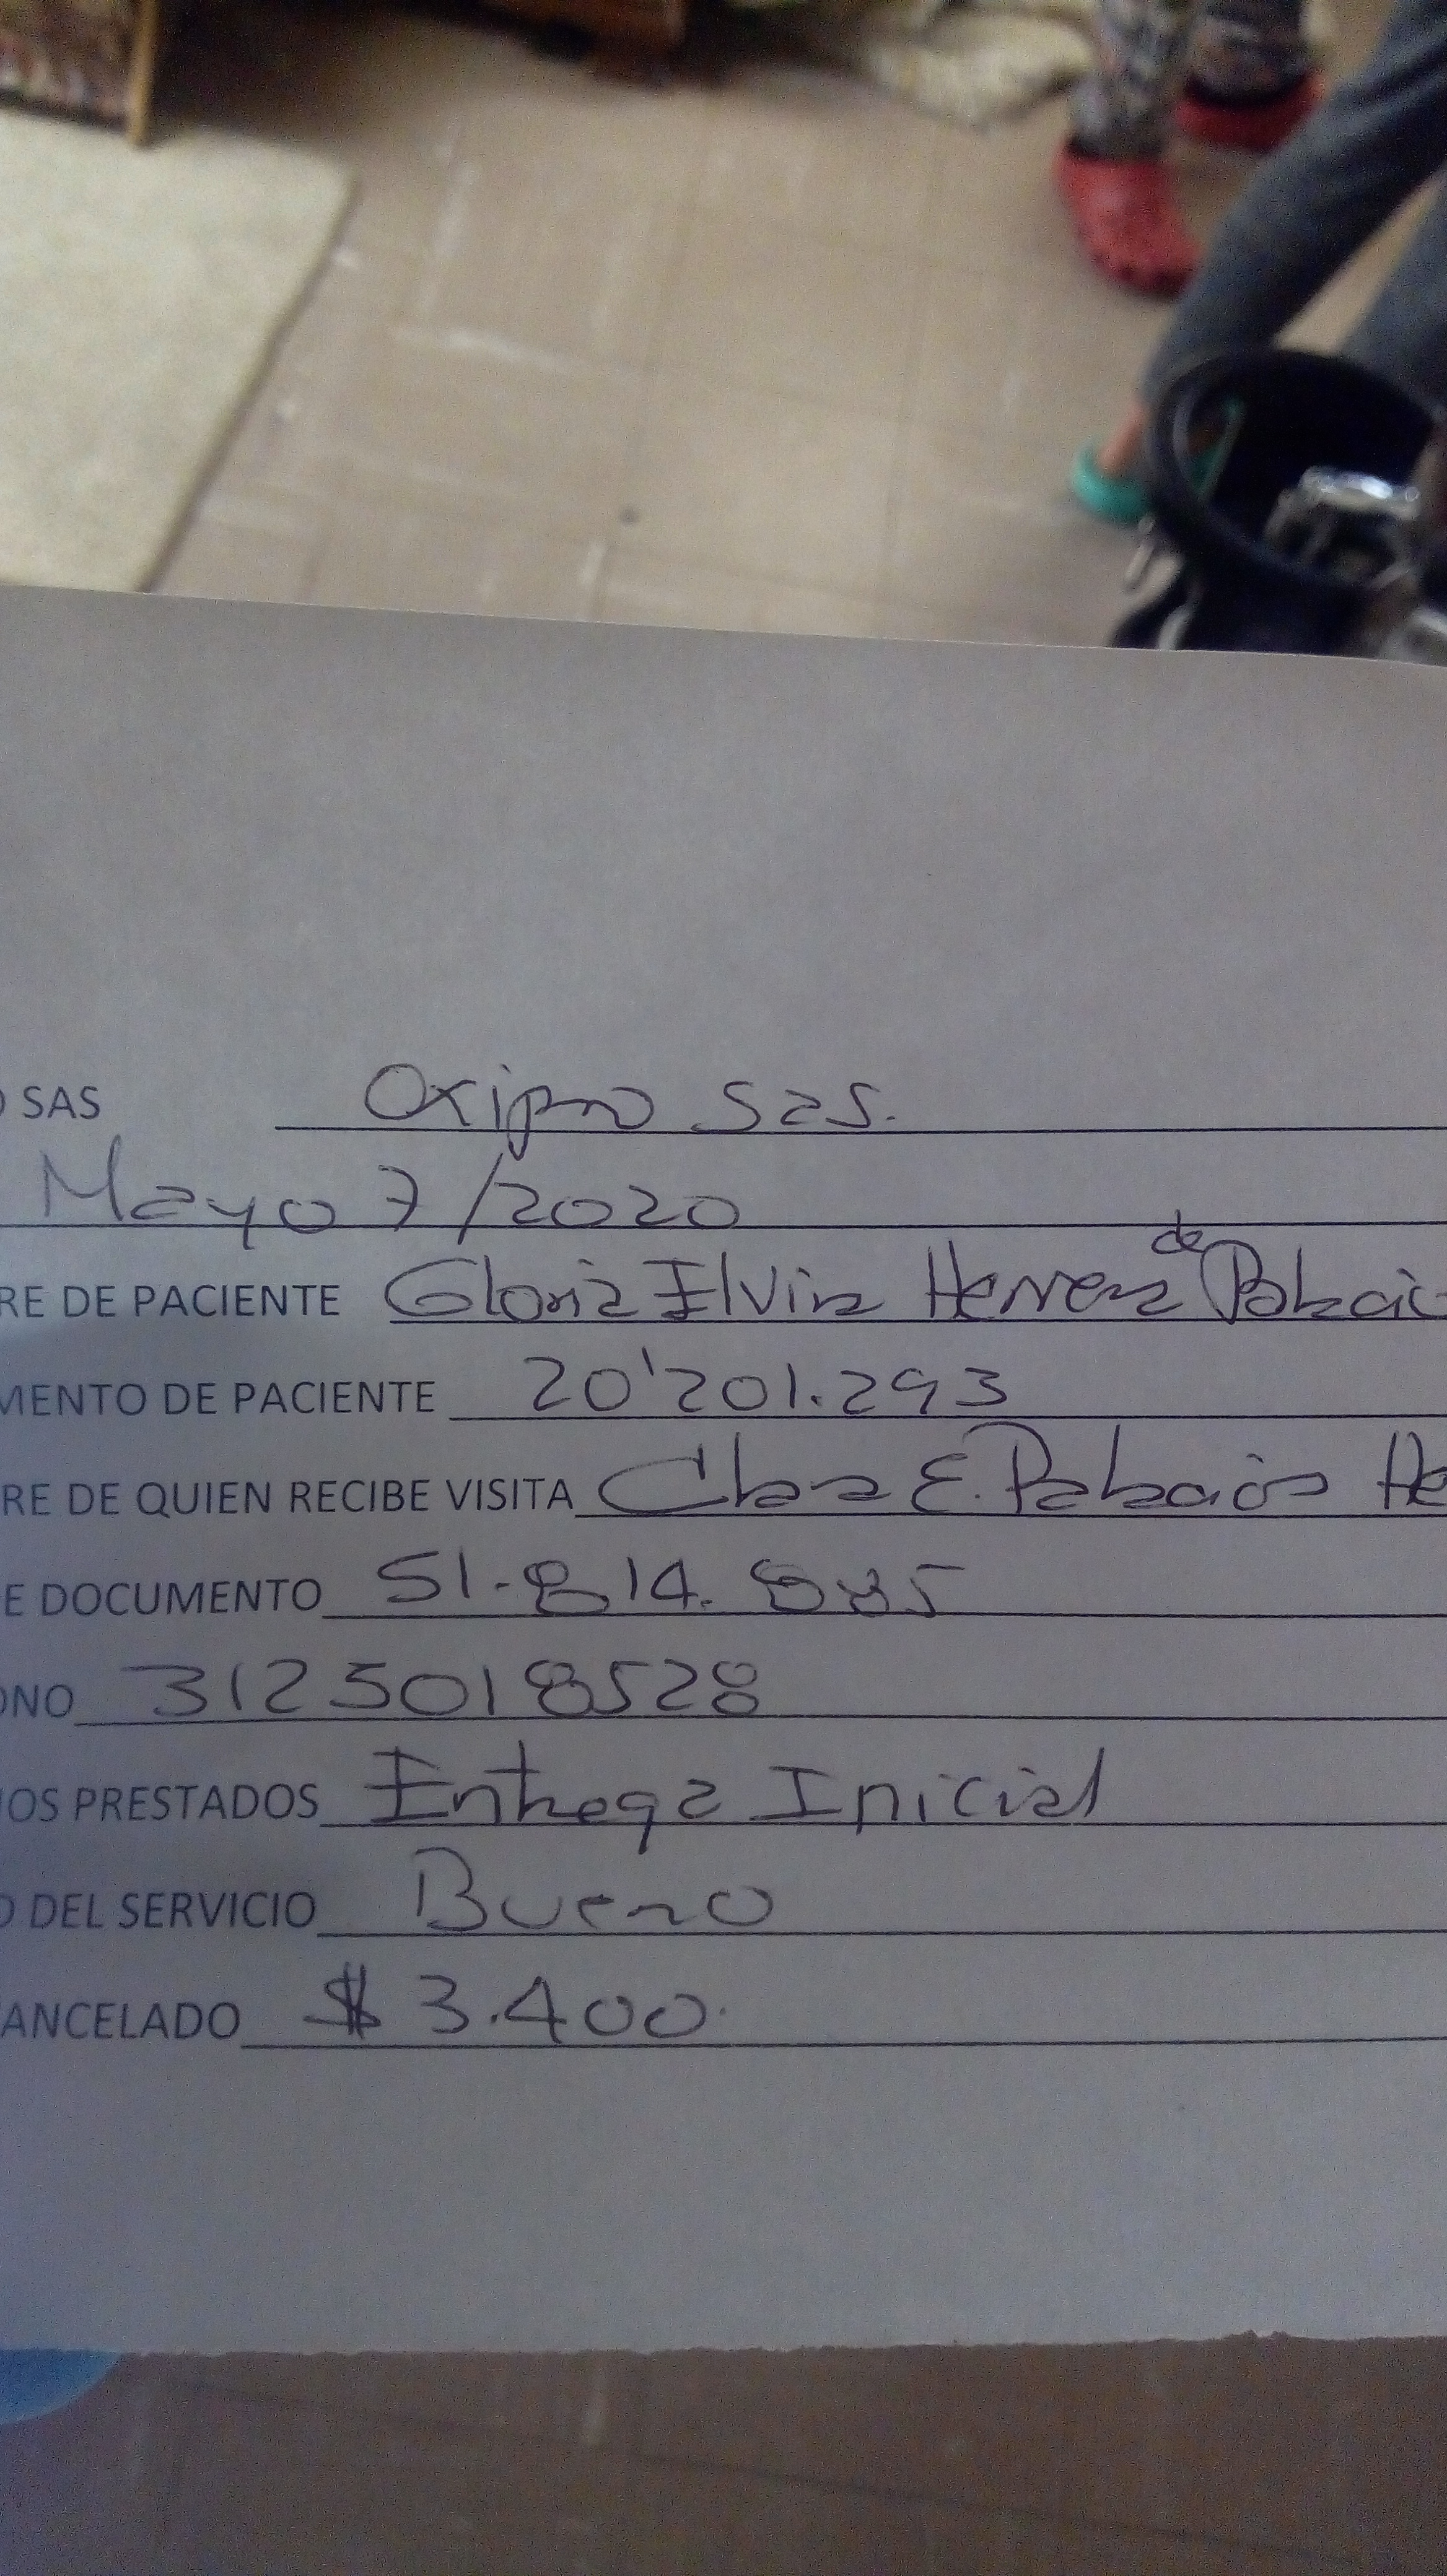 O SAS Oxipro SaS.
Mayo 7/2020
RE DE PACIENTE Gloria Elvira Herrera de Palacio
MENTO DE PACIENTE 20'201.293
RE DE QUIEN RECIBE VISITA Clara E. Palacios He
E DOCUMENTO 51.814.885
ONO 3125018528
IOS PRESTADOS Entrega Inicial
O DEL SERVICIO Bueno
ANCELADO $ 3.400.